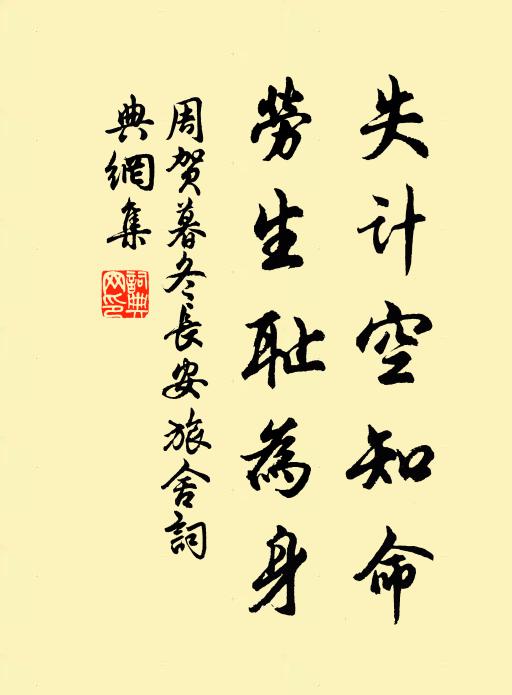 失计空知命
勞生耻為身
周贺暮冬長安旅舍詞
典網集
詞典網印